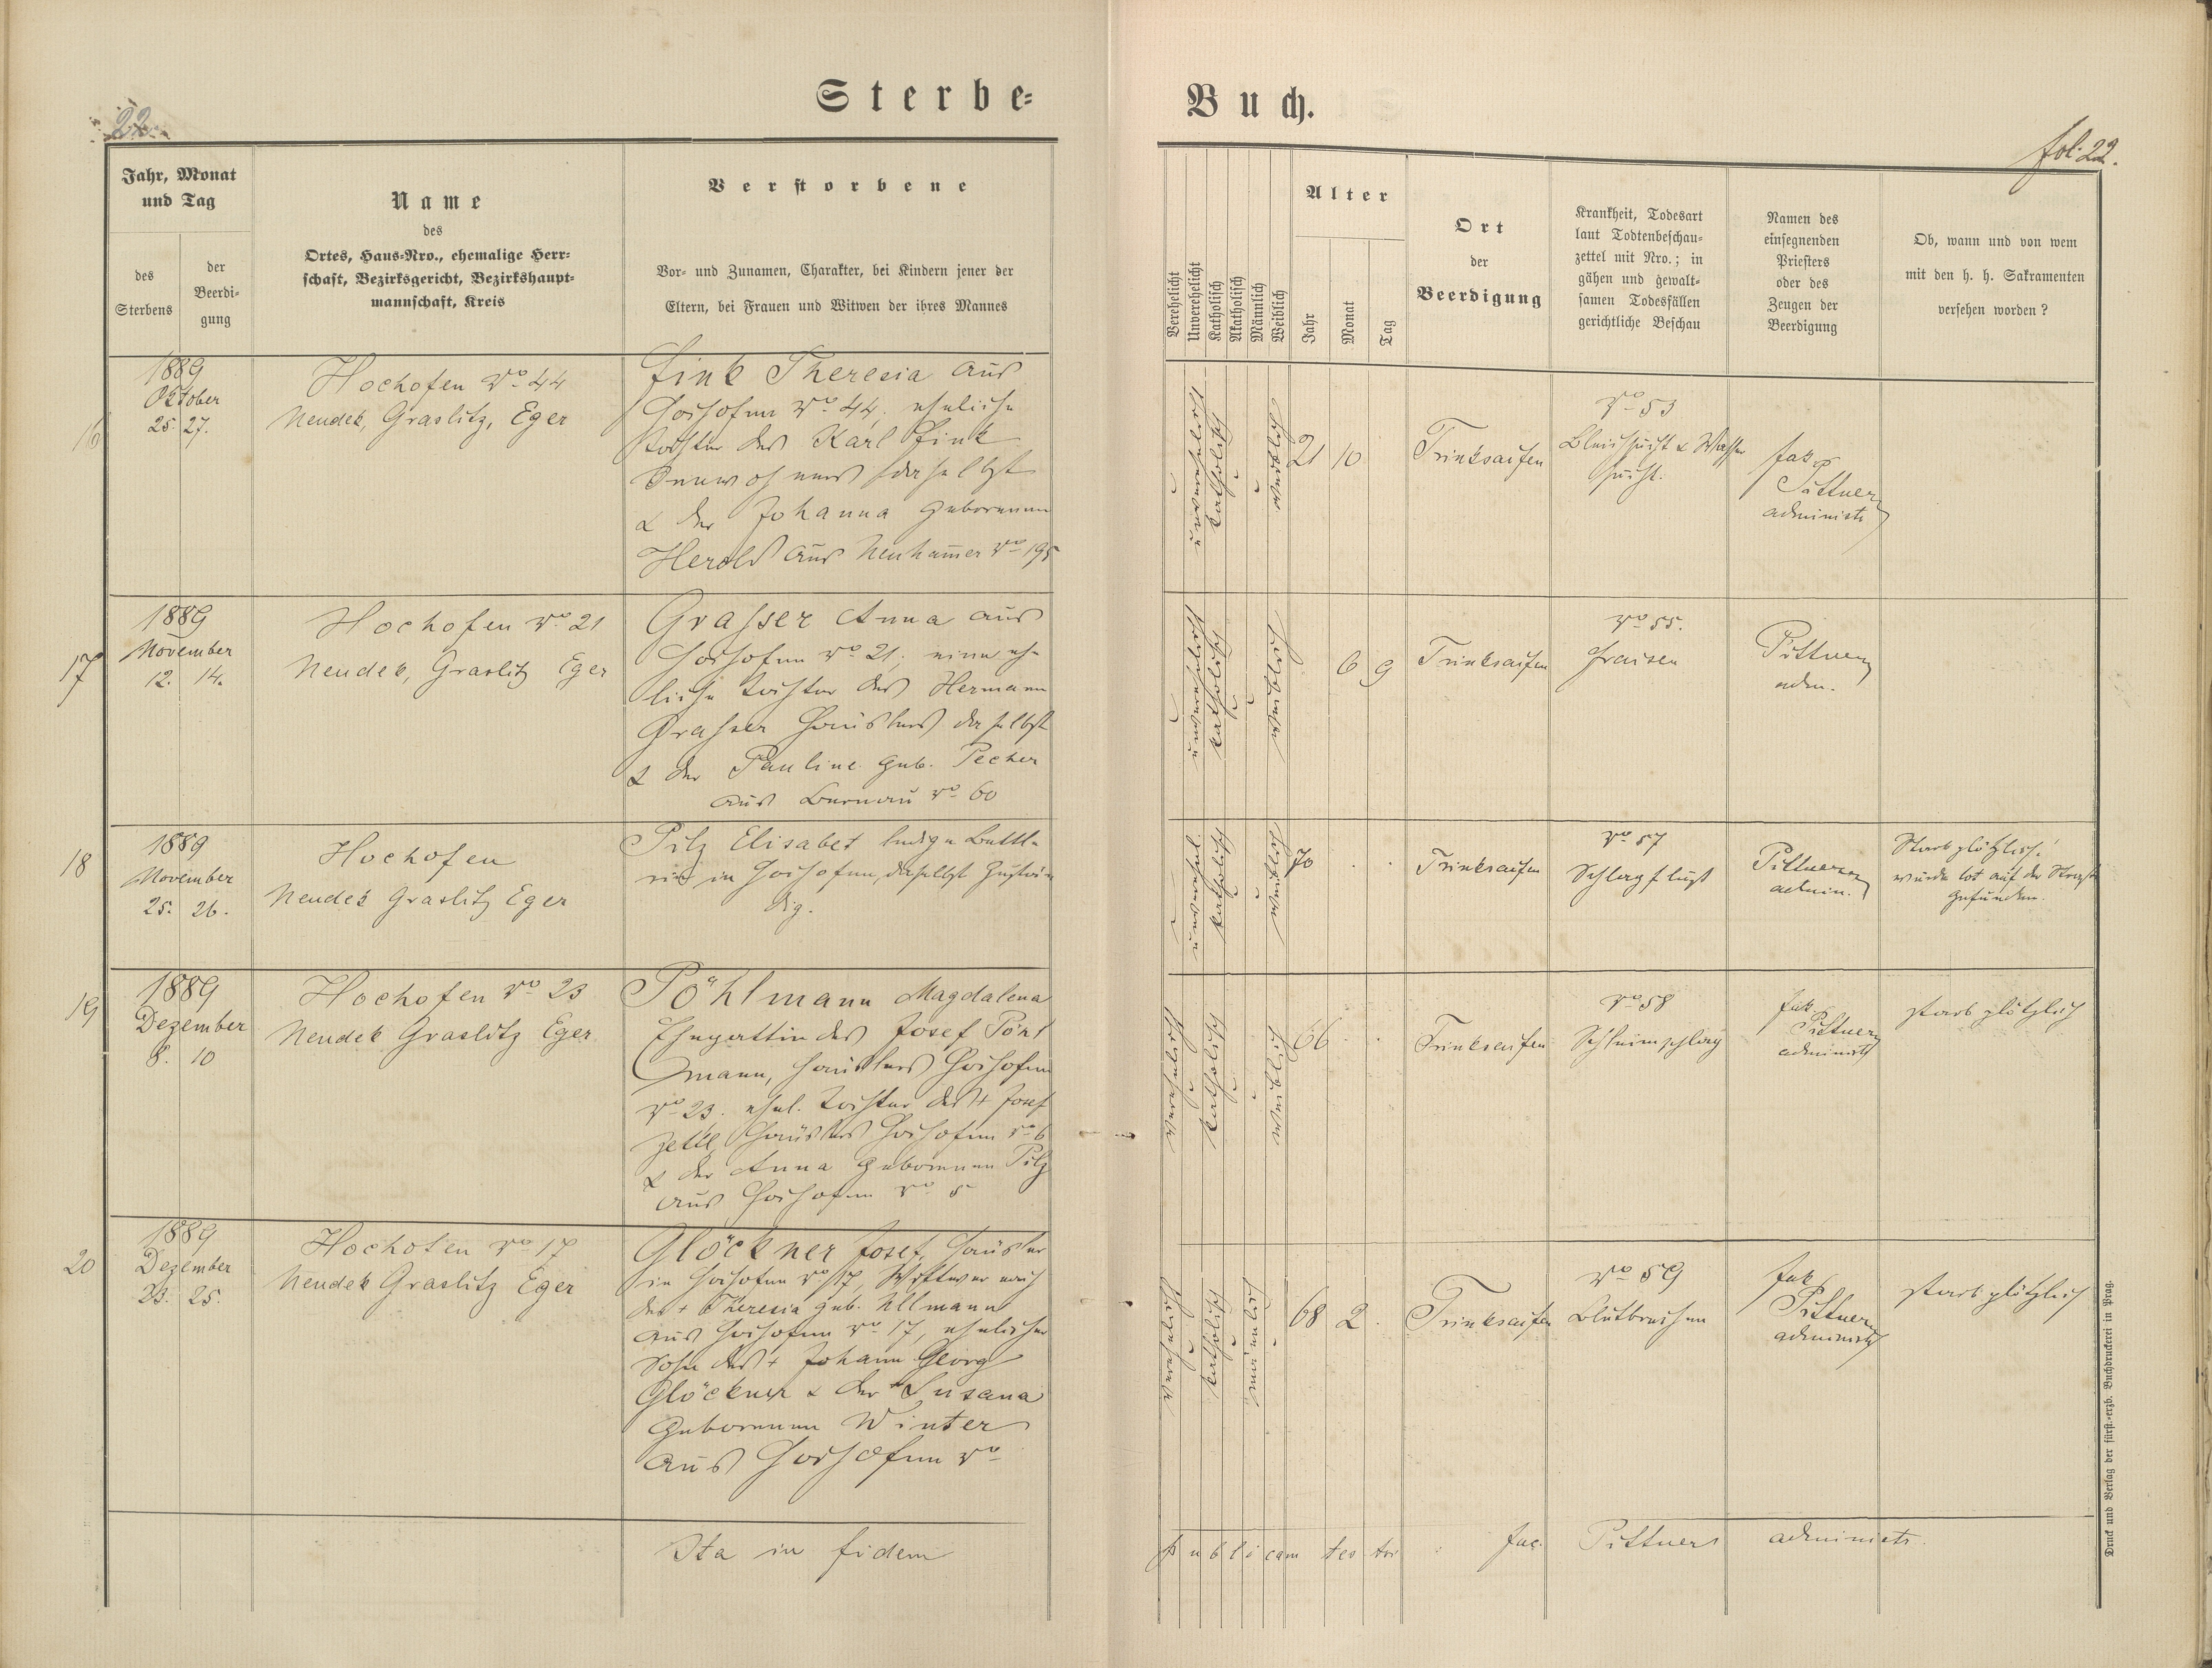 Sterbe-
Buch.
22.
fol: 22.
Jahr, Monat
und Tag
des
Sterbens
der
Beerdi-
gung
Name
des
Ortes, Haus-Nro., ehemalige Herr-
schaft, Bezirksgericht, Bezirkshaupt-
mannschaft, Kreis
Verstorbene
Vor- und Zunamen, Charakter, bei Kindern jener der
Eltern, bei Frauen und Witwen der ihres Mannes
Verehelicht
Unverehelicht
Katholisch
Akatholisch
Männlich
Weiblich
Alter
Jahr
Monat
Tag
Ort
der
Beerdigung
Krankheit, Todesart
laut Todtenbeschau-
zettel mit Nro.; in
gähen und gewalt-
samen Todesfällen
gerichtliche Beschau
Namen des
einsegnenden
Priesters
oder des
Zeugen der
Beerdigung
Ob, wann und von wem
mit den h. h. Sakramenten
versehen worden?
16
1889
Oktober
25. 27.
Hochofen No 44
Neudek, Graslitz, Eger
Fink Theresia aus
Hochofen No 44. eheliche
Tochter des Karl Fink
Inwohners daselbst
& der Johanna geborenen
Herold aus Neuham̅er No 195
unverehelicht
katholisch
weiblich
21 10
Trinksaifen
No 53
Bleichsucht & Wasser
sucht.
Jak.
Pittner
administr
17
1889
November
12. 14.
Hochofen No 21
Neudek, Graslitz Eger
Grasser Anna aus
Hochofen No 21; eine ehe-
liche Tochter des Hermann
Grasser Häuslers daselbst
& der Pauline geb. Pecher
aus Bernau No 60
unverehelicht
katholisch
weiblich
6 9
Trinksaifen
No 55.
Fraisen
Pittner
adm.
18
1889
November
25. 26.
Hochofen
Neudek Graslitz Eger
Pilz Elisabet ledige Bettle-
rin in Hochofen, daselbst zustän
dig.
unverehel.
katholisch
weiblich
70 . .
Trinksaifen
No 57
Schlagfluß
Pittner
admin.
Starb plötzlich!
wurde tot auf der Straße
gefunden.
19
1889
Dezember
8. 10
Hochofen No 23
Neudek Graslitz Eger
Pöhlmann Magdalena
Ehegattin des Josef Pöhl
mann, Häuslers Hochofen
No 23. ehel. Tochter des + Josef
Zettl, Häuslers Hochofen No 6
& der Anna geborenen Pilz
aus Hochofen No 5
verehelicht
katholisch
weiblich
66 . .
Trinksaifen
No 58
Schleimschlag
Jak.
Pittner
administr
starb plötzlich
20
1889
Dezember
23. 25.
Hochofen No 17
Neudek Graslitz Eger
Glöckner Josef, Häusler
in Hochofen No 17, Wittwer nach
der + Theresia geb. Ullmann
aus Hochofen No 17, ehelicher
Sohn des + Johann Georg
Glöckner & der + Susana
geborenen Winter
aus Hochofen No
verehelicht
katholisch
männlich
68 2 .
Trinksaifen
No 59
Blutbrechen
Jak.
Pittner
administr
starb plötzlich
Ita in fidem publicam testor: Jac. Pittner administr.
Druck und Verlag der fürst.-erzb. Buchdruckerei in Prag.